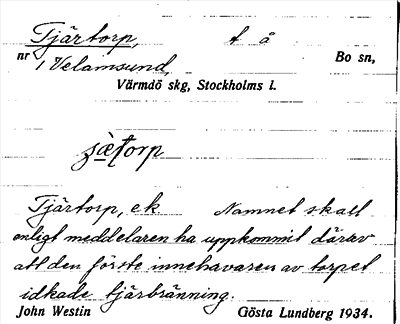 Tjärtorp, t å
nr i Velamsund, Bo sn,
Värmdö skg, Stockholms l.
Tjärtorp, ek Namnet skall
enligt meddelaren ha uppkommit därav
att den förste innehavaren av torpet
idkade tjärbränning.
John Westin Gösta Lundberg 1934.